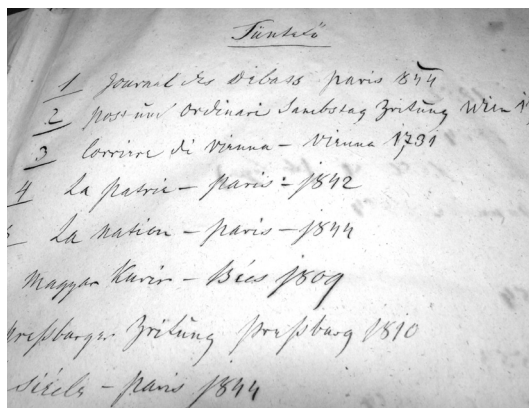 Tüntető
1 Journal des Débass paris 1844
2 post und Ordinari Sambstag Zeitung Wien
3 Corriere di Vienna – Vienna 1731
4 La patrie – paris – 1842
La Nation – paris – 1844
Magyar Kurir – Bécs 1809
preßburger Zeitung preßburg 1810
siécle – paris 1844